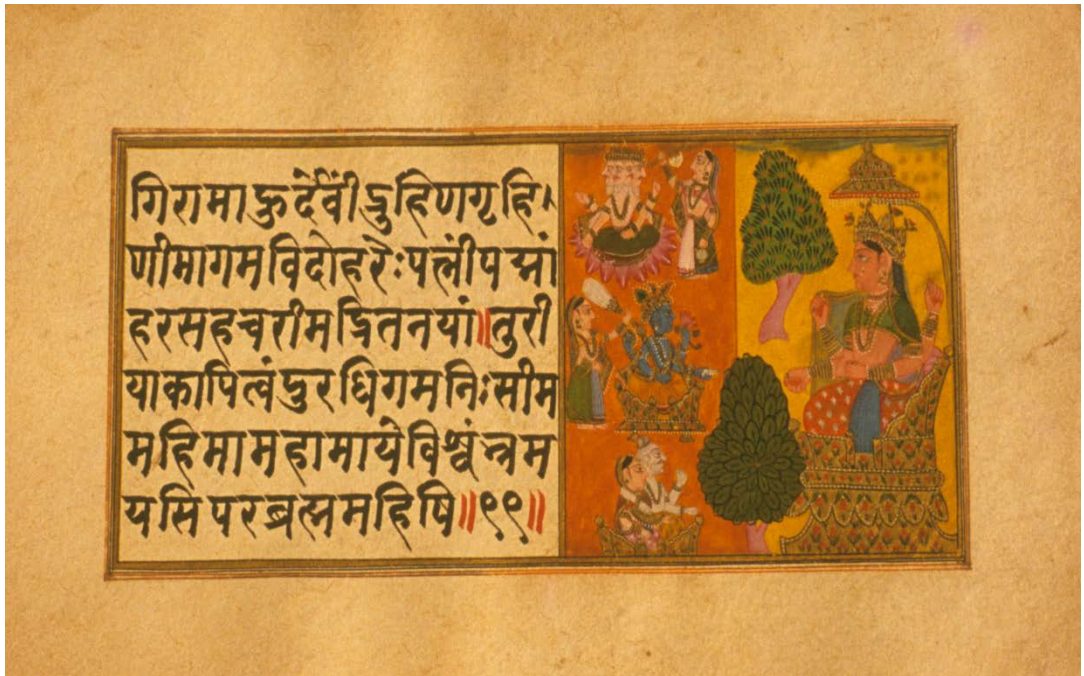 गिरामाहुर्देवींद्रुहिणगृहि।
णीमागमविदोहरेःपत्नींपद्मां
हरसहचरीमद्रितनयां॥तुरी
याकापित्वंदुरधिगमनिःसीम
महिमामहामायेविश्वंभ्रम
यसिपरब्रह्ममहिषि॥९९॥